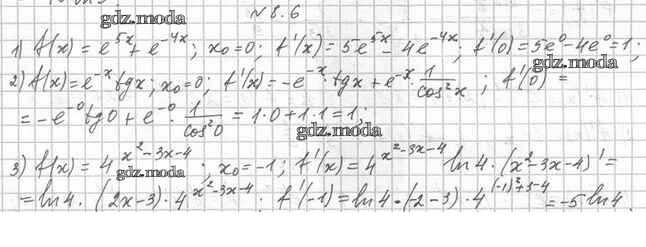 №8.6
gdz.moda
1) f(x) = e^{5x} + e^{-4x}; x₀ = 0; f'(x) = 5e^{5x} - 4e^{-4x}; f'(0) = 5e⁰ - 4e⁰ = 1;
gdz.moda
2) f(x) = e^{-x} tgx; x₀ = 0; f'(x) = -e^{-x} · tgx + e^{-x} · 1/cos²x; f'(0) =
gdz.moda
= -e^{-0} tg0 + e^{-0} · 1/cos²0 = 1·0 + 1·1 = 1;
gdz.moda
3) f(x) = 4^{x²-3x-4}; x₀ = -1; f'(x) = 4^{x²-3x-4} ln4 · (x²-3x-4)' =
gdz.moda
= ln4 · (2x-3) · 4^{x²-3x-4}. f'(-1) = ln4 · (-2-3) · 4^{(-1)²+3-4} = -5 ln4.